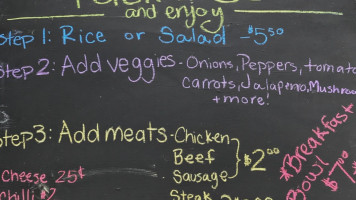 and enjoy
Step 1: Rice or Salad - $5.50
Step 2: Add veggies - Onions, Peppers, tomato
Carrots, Jalapeno, Mushroo
+ more!
Step 3: Add meats - Chicken
Beef
Sausage
$2.00
Steak
Cheese 25¢
Chilli
*Breakfast
Bowl $7.00